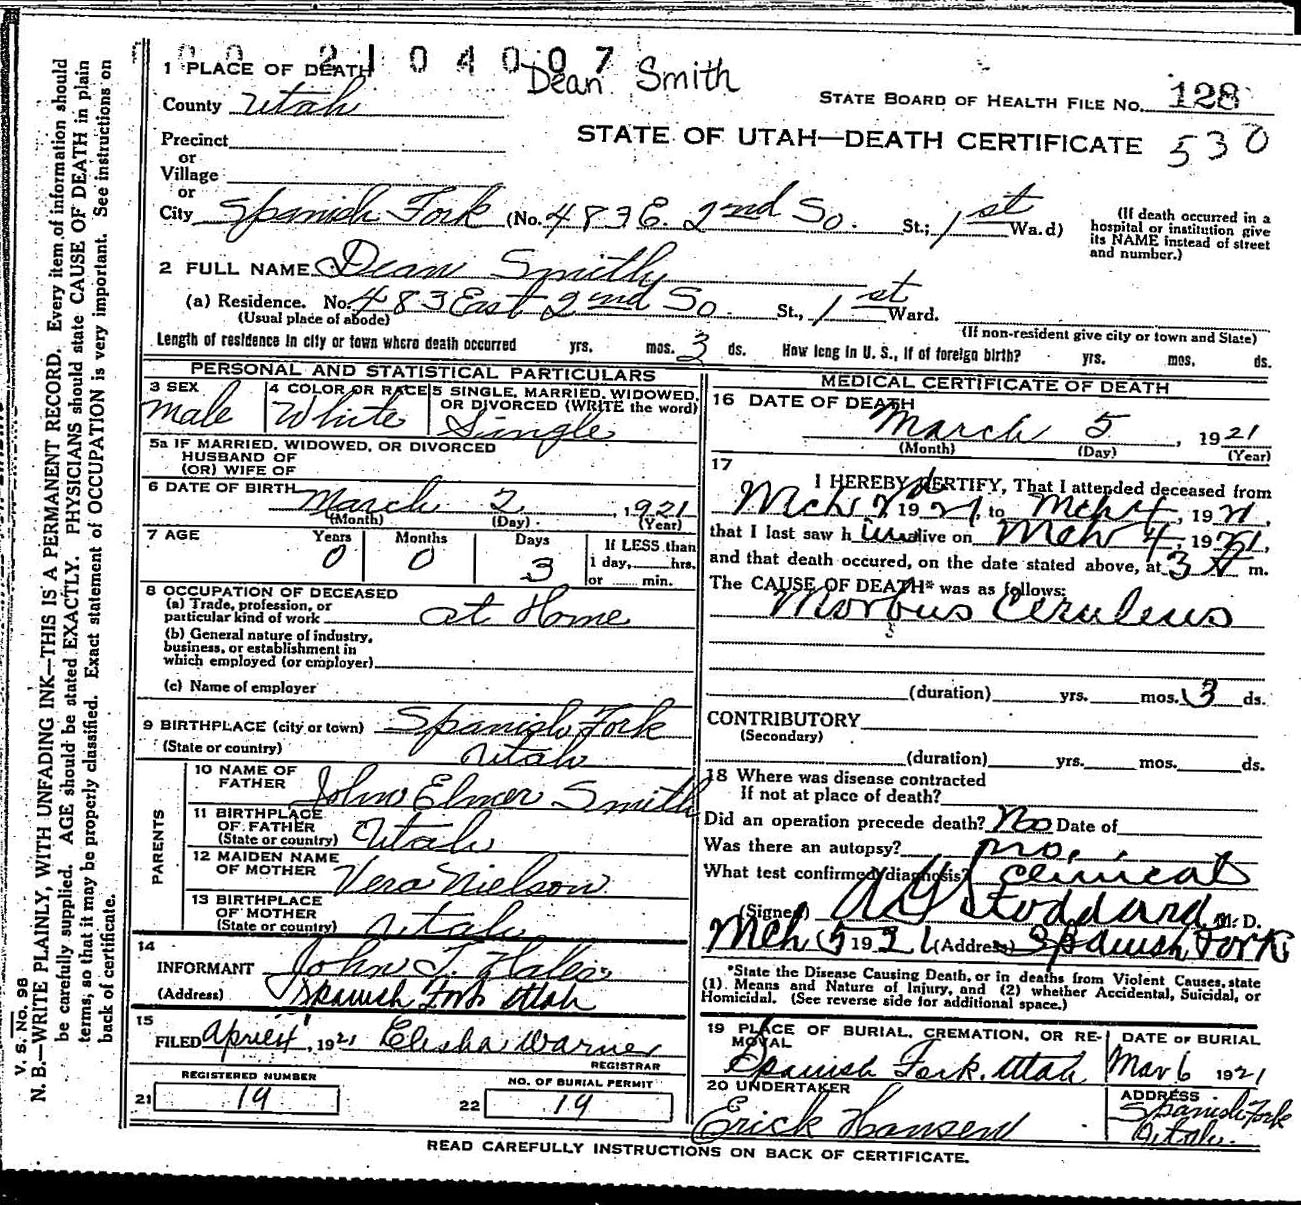 0 0 0 2 1 0 4 0 0 7
Dean Smith
STATE BOARD OF HEALTH FILE NO. 128
530
STATE OF UTAH—DEATH CERTIFICATE
1 PLACE OF DEATH
County Utah
Precinct
or
Village
or
City Spanish Fork (No. 483 E. 2nd So. St.; 1st Wa.d)
(If death occurred in a hospital or institution give its NAME instead of street and number.)
2 FULL NAME Dean Smith
(a) Residence. No. 483 East 2nd So. St., 1st Ward.
(Usual place of abode)
(If non-resident give city or town and State)
Length of residence in city or town where death occurred yrs. mos. 3 ds. How long in U. S., if of foreign birth? yrs. mos. ds.
PERSONAL AND STATISTICAL PARTICULARS
3 SEX
male
4 COLOR OR RACE
White
5 SINGLE, MARRIED, WIDOWED, OR DIVORCED (WRITE the word)
Single
5a IF MARRIED, WIDOWED, OR DIVORCED
HUSBAND OF
(OR) WIFE OF
6 DATE OF BIRTH March 2, 1921
(Month) (Day) (Year)
7 AGE Years Months Days If LESS than
0 0 3 1 day, hrs.
or min.
8 OCCUPATION OF DECEASED
(a) Trade, profession, or
particular kind of work at Home
(b) General nature of industry,
business, or establishment in
which employed (or employer)
(c) Name of employer
9 BIRTHPLACE (city or town) Spanish Fork
(State or country) Utah
PARENTS
10 NAME OF FATHER John Elmer Smith
11 BIRTHPLACE OF FATHER (State or country) Utah
12 MAIDEN NAME OF MOTHER Vera Nielson
13 BIRTHPLACE OF MOTHER (State or country) Utah
14
INFORMANT John T. Hales
(Address) Spanish Fork Utah
15
FILED April 4, 1921 Elisha Warner
REGISTRAR
REGISTERED NUMBER
21 19
NO. OF BURIAL PERMIT
22 19
MEDICAL CERTIFICATE OF DEATH
16 DATE OF DEATH
March 5, 1921
(Month) (Day) (Year)
17
I HEREBY CERTIFY, That I attended deceased from
Mch 2d 1921, to Mch 4, 1921,
that I last saw h im alive on Mch 4, 1921,
and that death occured, on the date stated above, at 3 m.
The CAUSE OF DEATH* was as follows:
Morbus Ceruleus
(duration) yrs. mos. 3 ds.
CONTRIBUTORY
(Secondary)
(duration) yrs. mos. ds.
18 Where was disease contracted
If not at place of death?
Did an operation precede death? No Date of
Was there an autopsy? no.
What test confirmed diagnosis? clinical
(Signed) Stoddard, M. D.
Mch 5 1921 (Address) Spanish Fork
*State the Disease Causing Death, or in deaths from Violent Causes, state
(1) Means and Nature of Injury, and (2) whether Accidental, Suicidal, or
Homicidal. (See reverse side for additional space.)
19 PLACE OF BURIAL, CREMATION, OR REMOVAL
Spanish Fork, Utah
DATE OF BURIAL
Mar 6 1921
20 UNDERTAKER
Erick Hansen
ADDRESS
Spanish Fork
Utah.
READ CAREFULLY INSTRUCTIONS ON BACK OF CERTIFICATE.
V. S. No. 98
N. B.—WRITE PLAINLY, WITH UNFADING INK—THIS IS A PERMANENT RECORD. Every item of information should
be carefully supplied. AGE should be stated EXACTLY. PHYSICIANS should state CAUSE OF DEATH in plain
terms, so that it may be properly classified. Exact statement of OCCUPATION is very important. See instructions on
back of certificate.